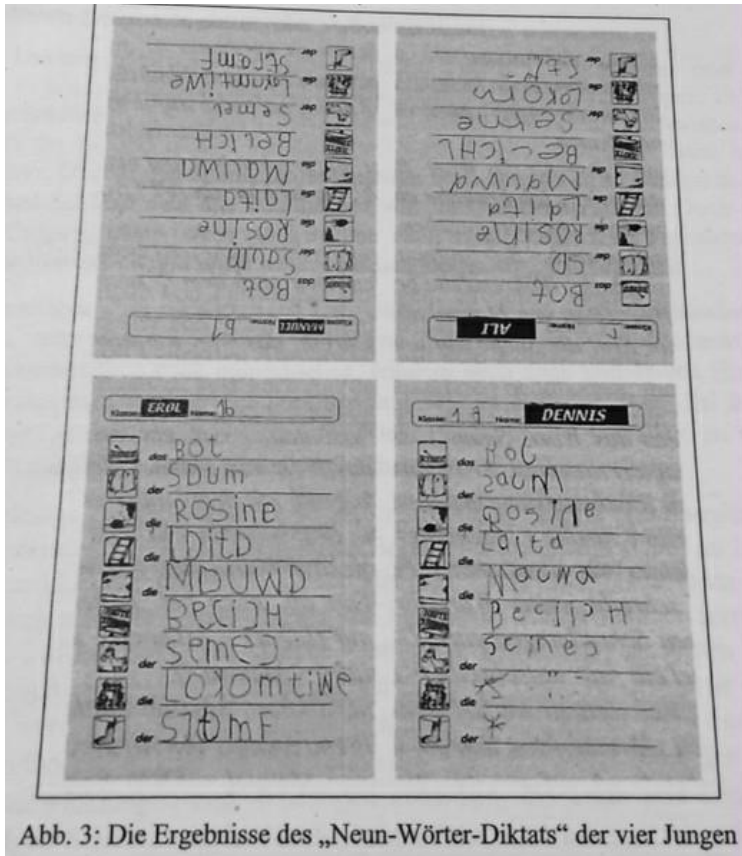 Klasse: MANUEL Name: 1b
das BOt
der Saum
die ROSine
die Laita
die MauWa
BeLICH
der Semel
die Lokomtiwe
der Stramf
Klasse: Name: ALI
das BOt
der SD
die ROSine
die Laita
die Mauwa
BeLICHL
der Serme
die LOkOm
der
Klasse: EROL Name: 1b
das BOt
der SDum
die ROSine
die LDitD
die MDUWD
BeCIJH
der semeJ
die LOkOmtiWe
der
Klasse: 1 a Name: DENNIS
das BOt
der SauM
die ROSiNe
die Laita
die Mauwa
der
die
der
Abb. 3: Die Ergebnisse des „Neun-Wörter-Diktats“ der vier Jungen